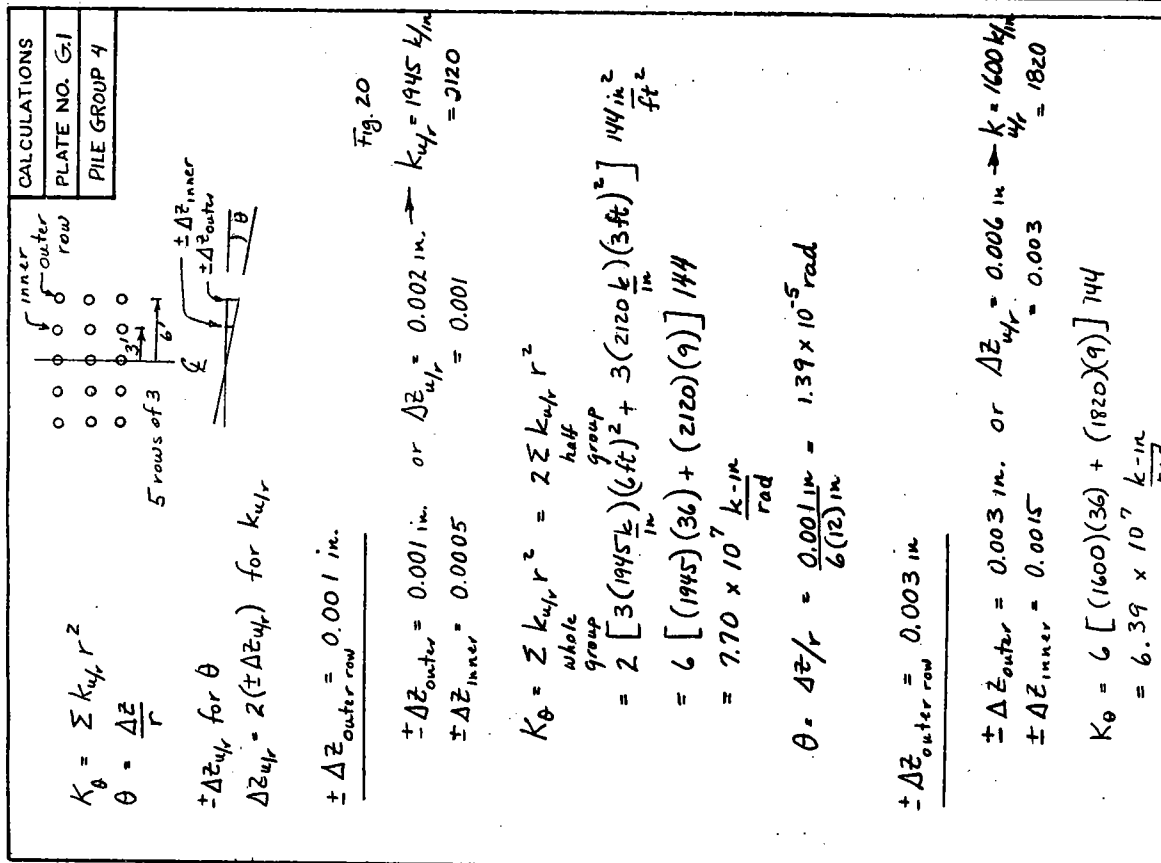 CALCULATIONS
PLATE NO. G.1
PILE GROUP 4
inner
outer row
3'
6'
5 rows of 3
℄
± ΔZ inner
± ΔZ outer
θ
K_θ = Σ k_u/r r²
θ = ΔZ / r
± ΔZ_u/r for θ
ΔZ_u/r = 2(± ΔZ_u/r) for k_u/r
± ΔZ outer row = 0.001 in.
Fig. 20
± ΔZ outer = 0.001 in. or ΔZ_u/r = 0.002 in. → k_u/r = 1945 k/in
± ΔZ inner = 0.0005 = 0.001 = 2120
K_θ = Σ k_u/r r² = 2 Σ k_u/r r²
whole group half group
= 2 [ 3(1945 k/in)(6 ft)² + 3(2120 k/in)(3 ft)² ] 144 in²/ft²
= 6 [ (1945)(36) + (2120)(9) ] 144
= 7.70 x 10⁷ k-in/rad
θ = ΔZ/r = 0.001 in / 6(12) in = 1.39 x 10⁻⁵ rad
± ΔZ outer row = 0.003 in
± ΔZ outer = 0.003 in. or ΔZ_u/r = 0.006 in → k_u/r = 1600 k/in
± ΔZ inner = 0.0015 = 0.003 = 1820
K_θ = 6 [ (1600)(36) + (1820)(9) ] 144
= 6.39 x 10⁷ k-in